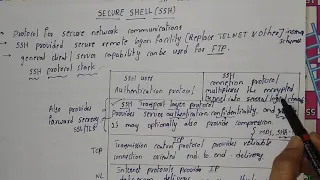 SECURE SHELL (SSH)
→ Protocol for secure network communications
→ SSH provided secure remote logon facility (Replace TELNET & other)
→ general client/server capability can be used for FTP.
→ SSH protocol stack
SSH user
Authentication protocol
SSH
connection protocol
multiplexes the encrypted
SSH Transport layer protocol
Provides server authentication, confidentiality, and
It may optionally also provide compression.
Also provided
forward secrecy
SSL/TLS
TCP
Transmission control protocol provides reliable
connection oriented end to end delivery
IP
Internet protocol provides
NL
datagram delivery